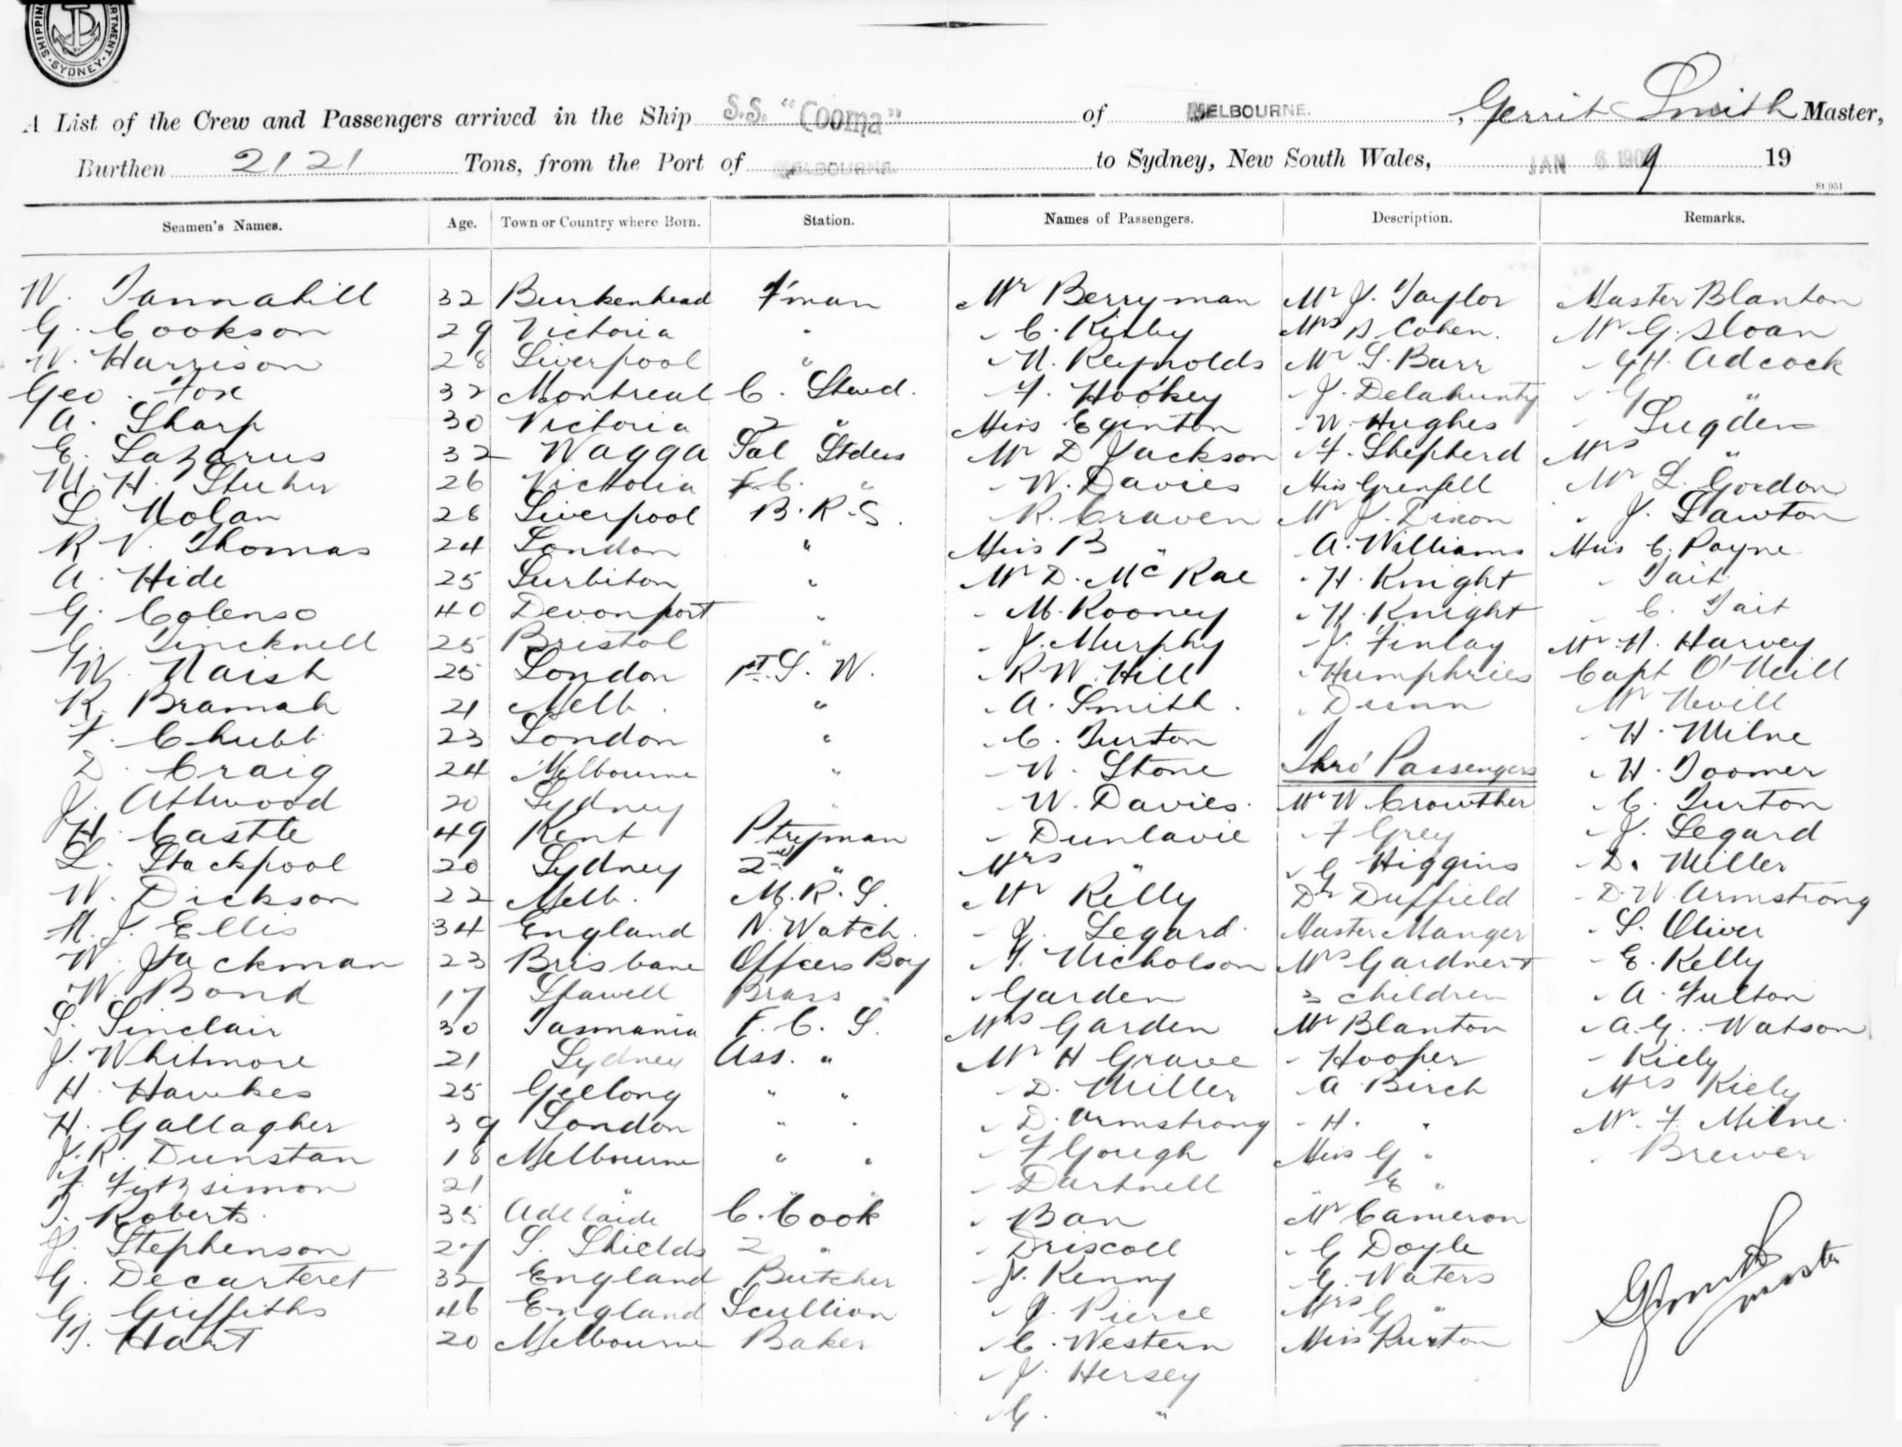 SHIPPING DEPARTMENT. SYDNEY.
A List of the Crew and Passengers arrived in the Ship S.S. "Cooma" of MELBOURNE. , Gerrit Smith Master,
Burthen 2121 Tons, from the Port of MELBOURNE. to Sydney, New South Wales, JAN 6 1909 19
Seamen's Names. Age. Town or Country where Born. Station. Names of Passengers. Description. Remarks.
W. Tannahill 32 Burkenhead F'man Mr Berryman Mr J. Taylor Master Blanton
G. Cookson 29 Victoria " - C. Kirby Mrs B. Cohen. Mr G. Sloan
W. Harrison 28 Liverpool " - N. Reynolds Mr S. Barr - G.H. Adcock
Geo. Fox 32 Montreal C. Stwd. - F. Hookey - J. Delahunty - G "
A. Sharp 30 Victoria 2 " Miss Eginton - W. Hughes - Sugden
E. Lazarus 32 Wagga Sal Stders Mr D Jackson - F. Shepherd Mrs "
M. H. Stuher 26 Victoria F.C. " - W. Davies Miss Grenfell Mr L. Gordon
L. Nolan 26 Liverpool B.R.S. - R. Craven Mr J. Dixon - J. Lawton
R V. Thomas 24 London " Miss B " - A. Williams Miss C. Payne
A. Hide 25 Surbiton " Mr D. McRae - H. Knight - Tait
G. Colenso 40 Devonport " - M. Rooney - H. Knight - C. Tait
G. Tincknell 25 Bristol " - J. Murphy - J. Finlay Mr N. Harvey
W. Naish 25 London 1st. S. W. - R W. Hill - Humphries Capt O'Neill
R. Bramah 21 Melb. " - A. Smith. - Dunn Mr Nevill
F. Chubb 23 London " - C. Turton - H. Milne
D. Craig 24 Melbourne " - W. Stone Thro' Passengers - H. Toomer
J. Attwood 20 Sydney " - W. Davies. Mr W. Crowther - C. Turton
H. Castle 49 Kent Ptryman - Dunlavie - F Grey - J. Legard
L. Stackpool 20 Sydney 2nd " Mrs " - G Higgins - D. Miller
W. Dickson 22 Melb. M.R.S. Mr Kelly Dr Duffield - D.W. Armstrong
H. J. Ellis 34 England N. Watch. - J. Legard. Master Manger - S. Oliver
W. Jackman 23 Brisbane Officers Boy - F. Nicholson Mrs Gardner + - E. Kelly
W. Bond 17 Stawell Brass " - Garden 3 children - A. Fulton
S. Sinclair 30 Tasmania F. C. S. Mrs Garden Mr Blanton - A.G. Watson
J. Whitmore 21 Sydney Ass. " Mr H Grave - Hooper - Kiely
H. Hawkes 25 Geelong " " - D. Miller - A Birch Mrs Kiely
H. Gallagher 39 London " " - D. Armstrong - H. " Mr F. Milne
J.R. Dunstan 18 Melbourne " " - F Gough Miss G " - Brewer
F. Fitzsimon 21 " " " - Dartnell " E "
T. Roberts. 35 Adelaide C. Cook - Ban Mr Cameron
J. Stephenson 27 S. Shields 2 " - Driscoll - G Doyle
G. Decarteret 32 England Butcher - J. Kenny - G. Waters
G. Griffiths 46 England Scullion - J. Pierce Mrs G "
T. Hart 20 Melbourne Baker - C. Western Miss Ruxton
- J. Hersey
- G. "
G Smith
master